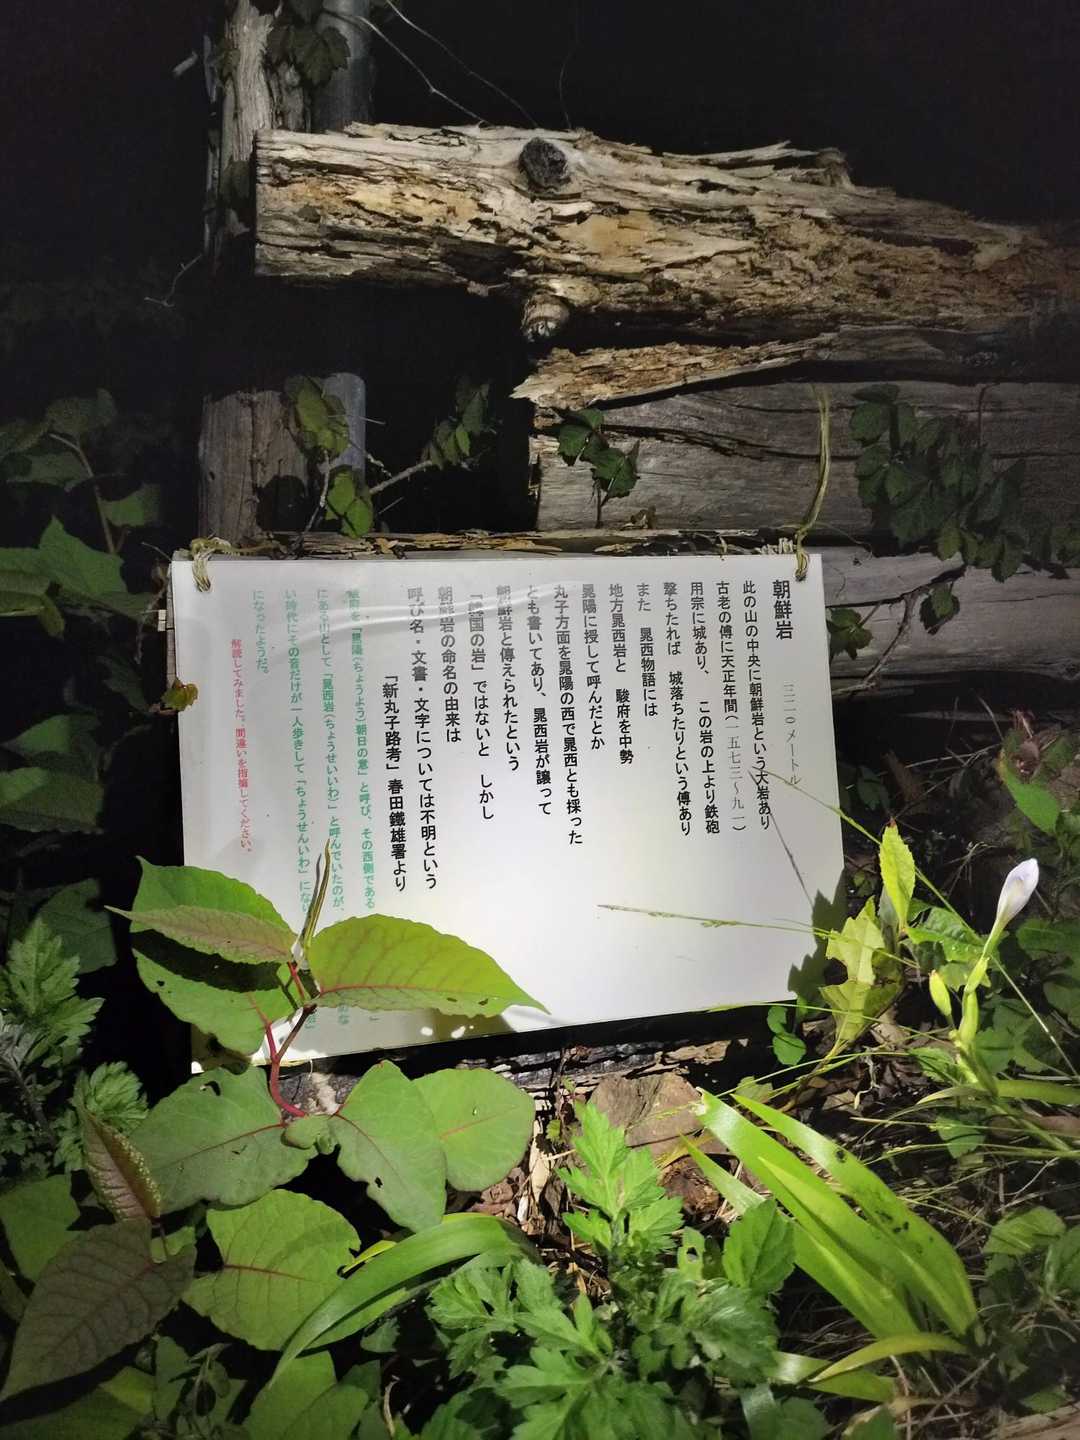 朝鮮岩 三二〇メートル
此の山の中央に朝鮮岩という大岩あり
古老の傅に天正年間(一五七三〜九一)
用宗に城あり、この岩の上より鉄砲
撃ちたれば 城落ちたりという傅あり
また 晁西物語には
地方晁西岩と 駿府を中勢
晁陽に授して呼んだとか
丸子方面を晁陽の西で晁西とも採った
とも書いてあり、晁西岩が譲って
朝鮮岩と傳えられたという
「韓国の岩」ではないと しかし
朝鮮岩の命名の由来は
呼び名・文書・文字については不明という
「新丸子路考」春田鐵雄署より
駿府を「晁陽(ちょうよう)朝日の意」と呼び、その西側である
にある山として「晁西岩(ちょうせいいわ)」と呼んでいたのが、
い時代にその音だけが一人歩きして「ちょうせんいわ」にな
になったようだ。
解読してみました。間違いを指摘してください。